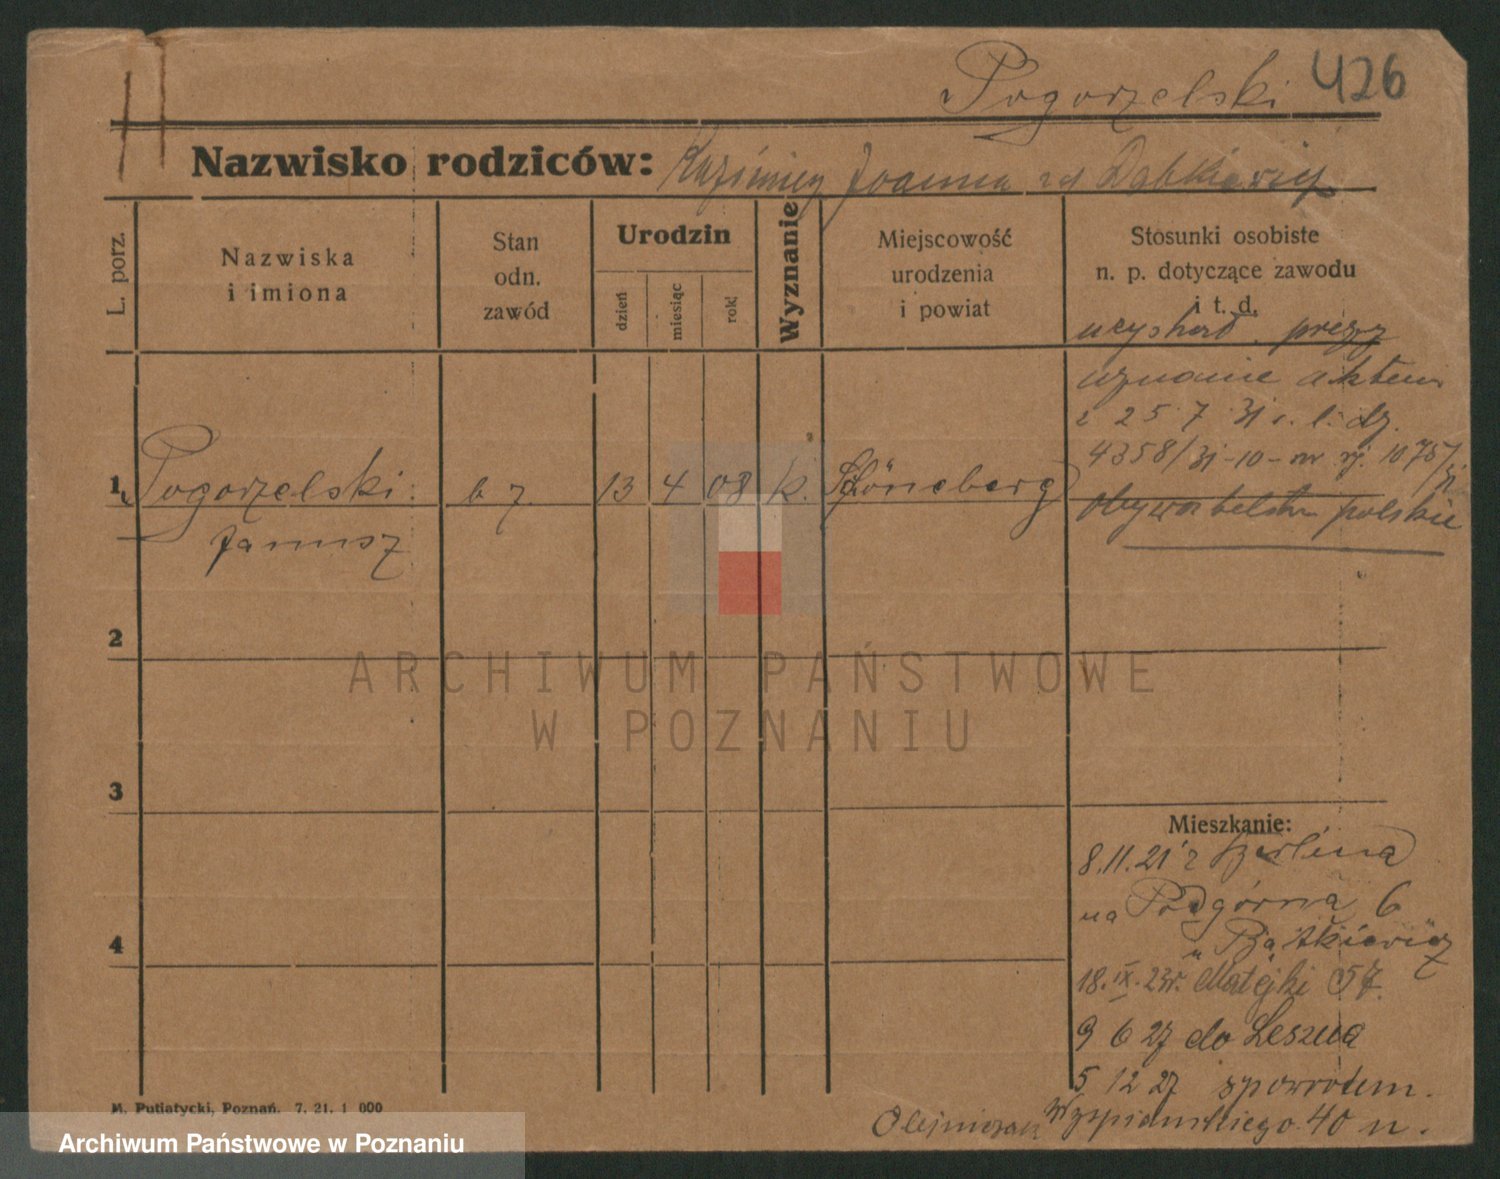 Pogorzelski 426
Nazwisko rodziców: Kazimierz Joanna zd Dąbkiewicz
L. porz.
Nazwiska
i imiona
Stan
odn.
zawód
Urodzin
dzień
miesiąc
rok
Wyznanie
Miejscowość
urodzenia
i powiat
Stosunki osobiste
n. p. dotyczące zawodu
i t. d.
przez
uznanie aktem
z 25 7 31 r. l. dz.
4358/31-10- nr rj. 1075/31
obywatelstw polskie
1 Pogorzelski b z 13 4 08 k. Schöneberg
Janusz
2
3
4
Mieszkanie:
8.11.21 z Berlina
na Podgórna 6
u
18.IX.23r. Matejki 57.
9 6 27 do Leszna
5 12 27 spowrotem.
Wyspiańskiego 40 u.
M. Putiatycki, Poznań. 7. 21. 1 000
ARCHIWUM PAŃSTWOWE
W POZNANIU
Archiwum Państwowe w Poznaniu